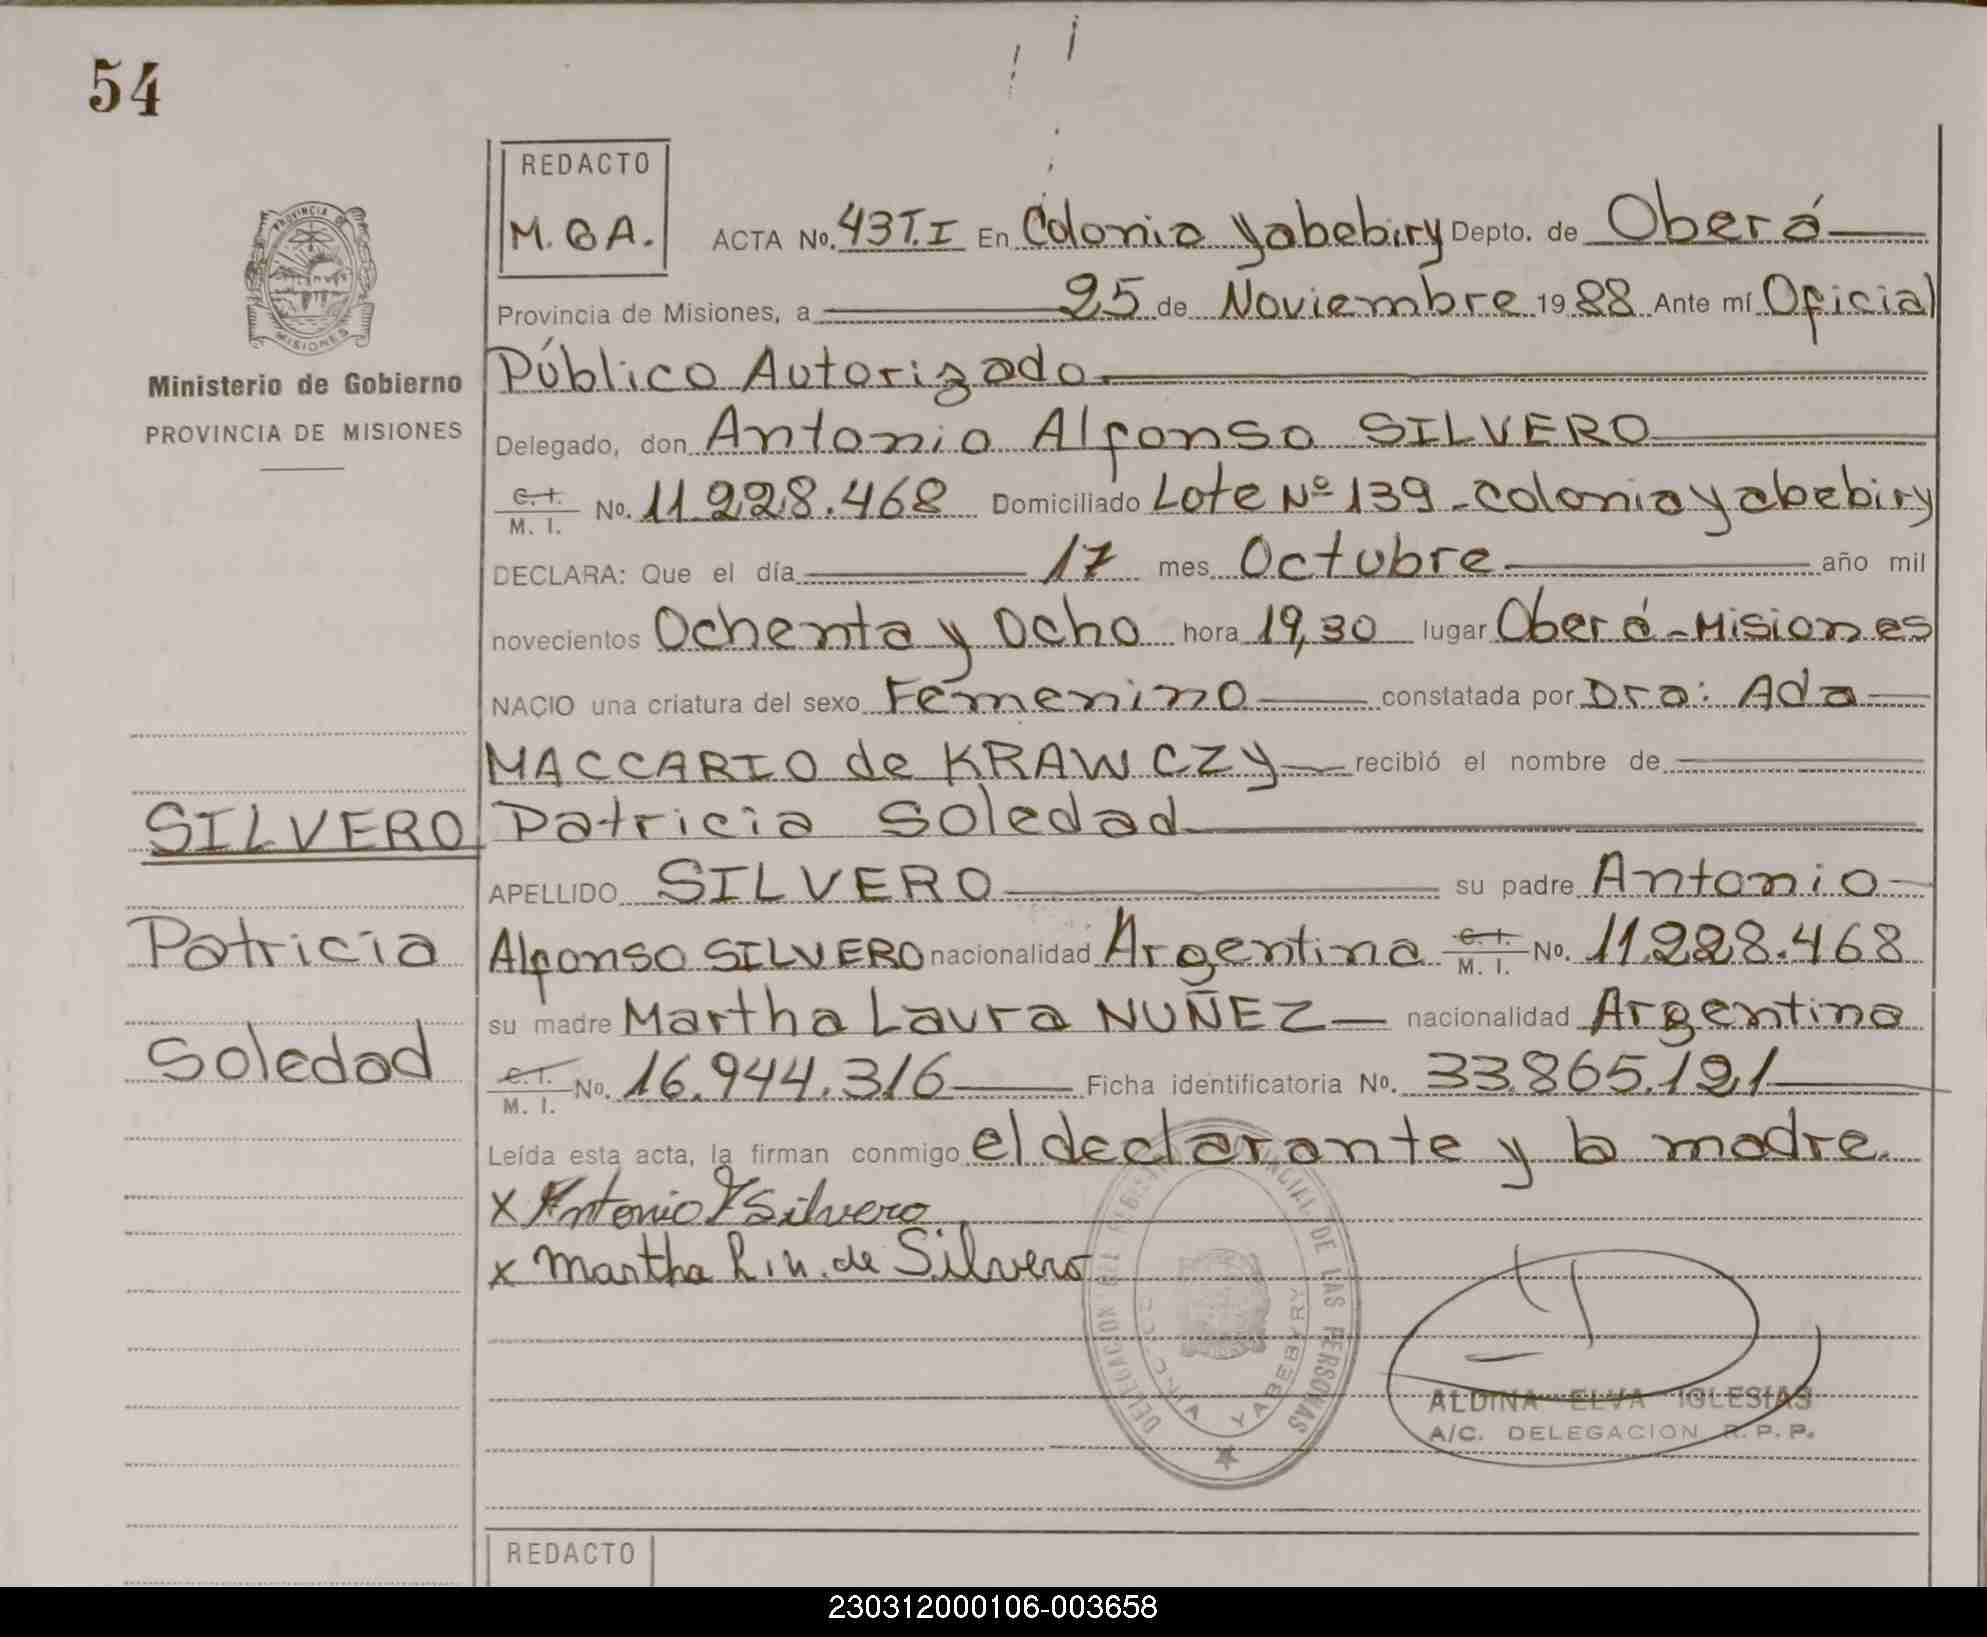 54
PROVINCIA DE
MISIONES
Ministerio de Gobierno
PROVINCIA DE MISIONES
REDACTO
M. B A.
ACTA No. 43 T. I En Colonia Yabebiry Depto. de Oberá
Provincia de Misiones, a 25 de Noviembre 1988 Ante mí Oficial
Público Autorizado
Delegado, don Antonio Alfonso SILVERO
C. I. M. I. No. 11.228.468 Domiciliado Lote Nº 139 - Colonia Yabebiry
DECLARA: Que el día 17 mes Octubre año mil
novecientos Ochenta y Ocho hora 19,30 lugar Oberá - Misiones
NACIO una criatura del sexo Femenino constatada por Dra: Ada
MACCARIO de KRAWCZY recibió el nombre de
SILVERO Patricia Soledad
APELLIDO SILVERO su padre Antonio
Patricia
Alfonso SILVERO nacionalidad Argentina C. I. M. I. No. 11.228.468
su madre Martha Laura NUÑEZ nacionalidad Argentina
Soledad
C. I. M. I. No. 16.944.316 Ficha identificatoria No. 33.865.121
Leída esta acta, la firman conmigo el declarante y la madre.
x Antonio A Silvero
x Martha L. N. de Silvero
DELEGACION DEL REGISTRO PROVINCIAL DE LAS PERSONAS
COLONIA YABEBYRY
ALDINA ELVA IGLESIAS
A/C. DELEGACION R. P. P.
REDACTO
230312000106-003658